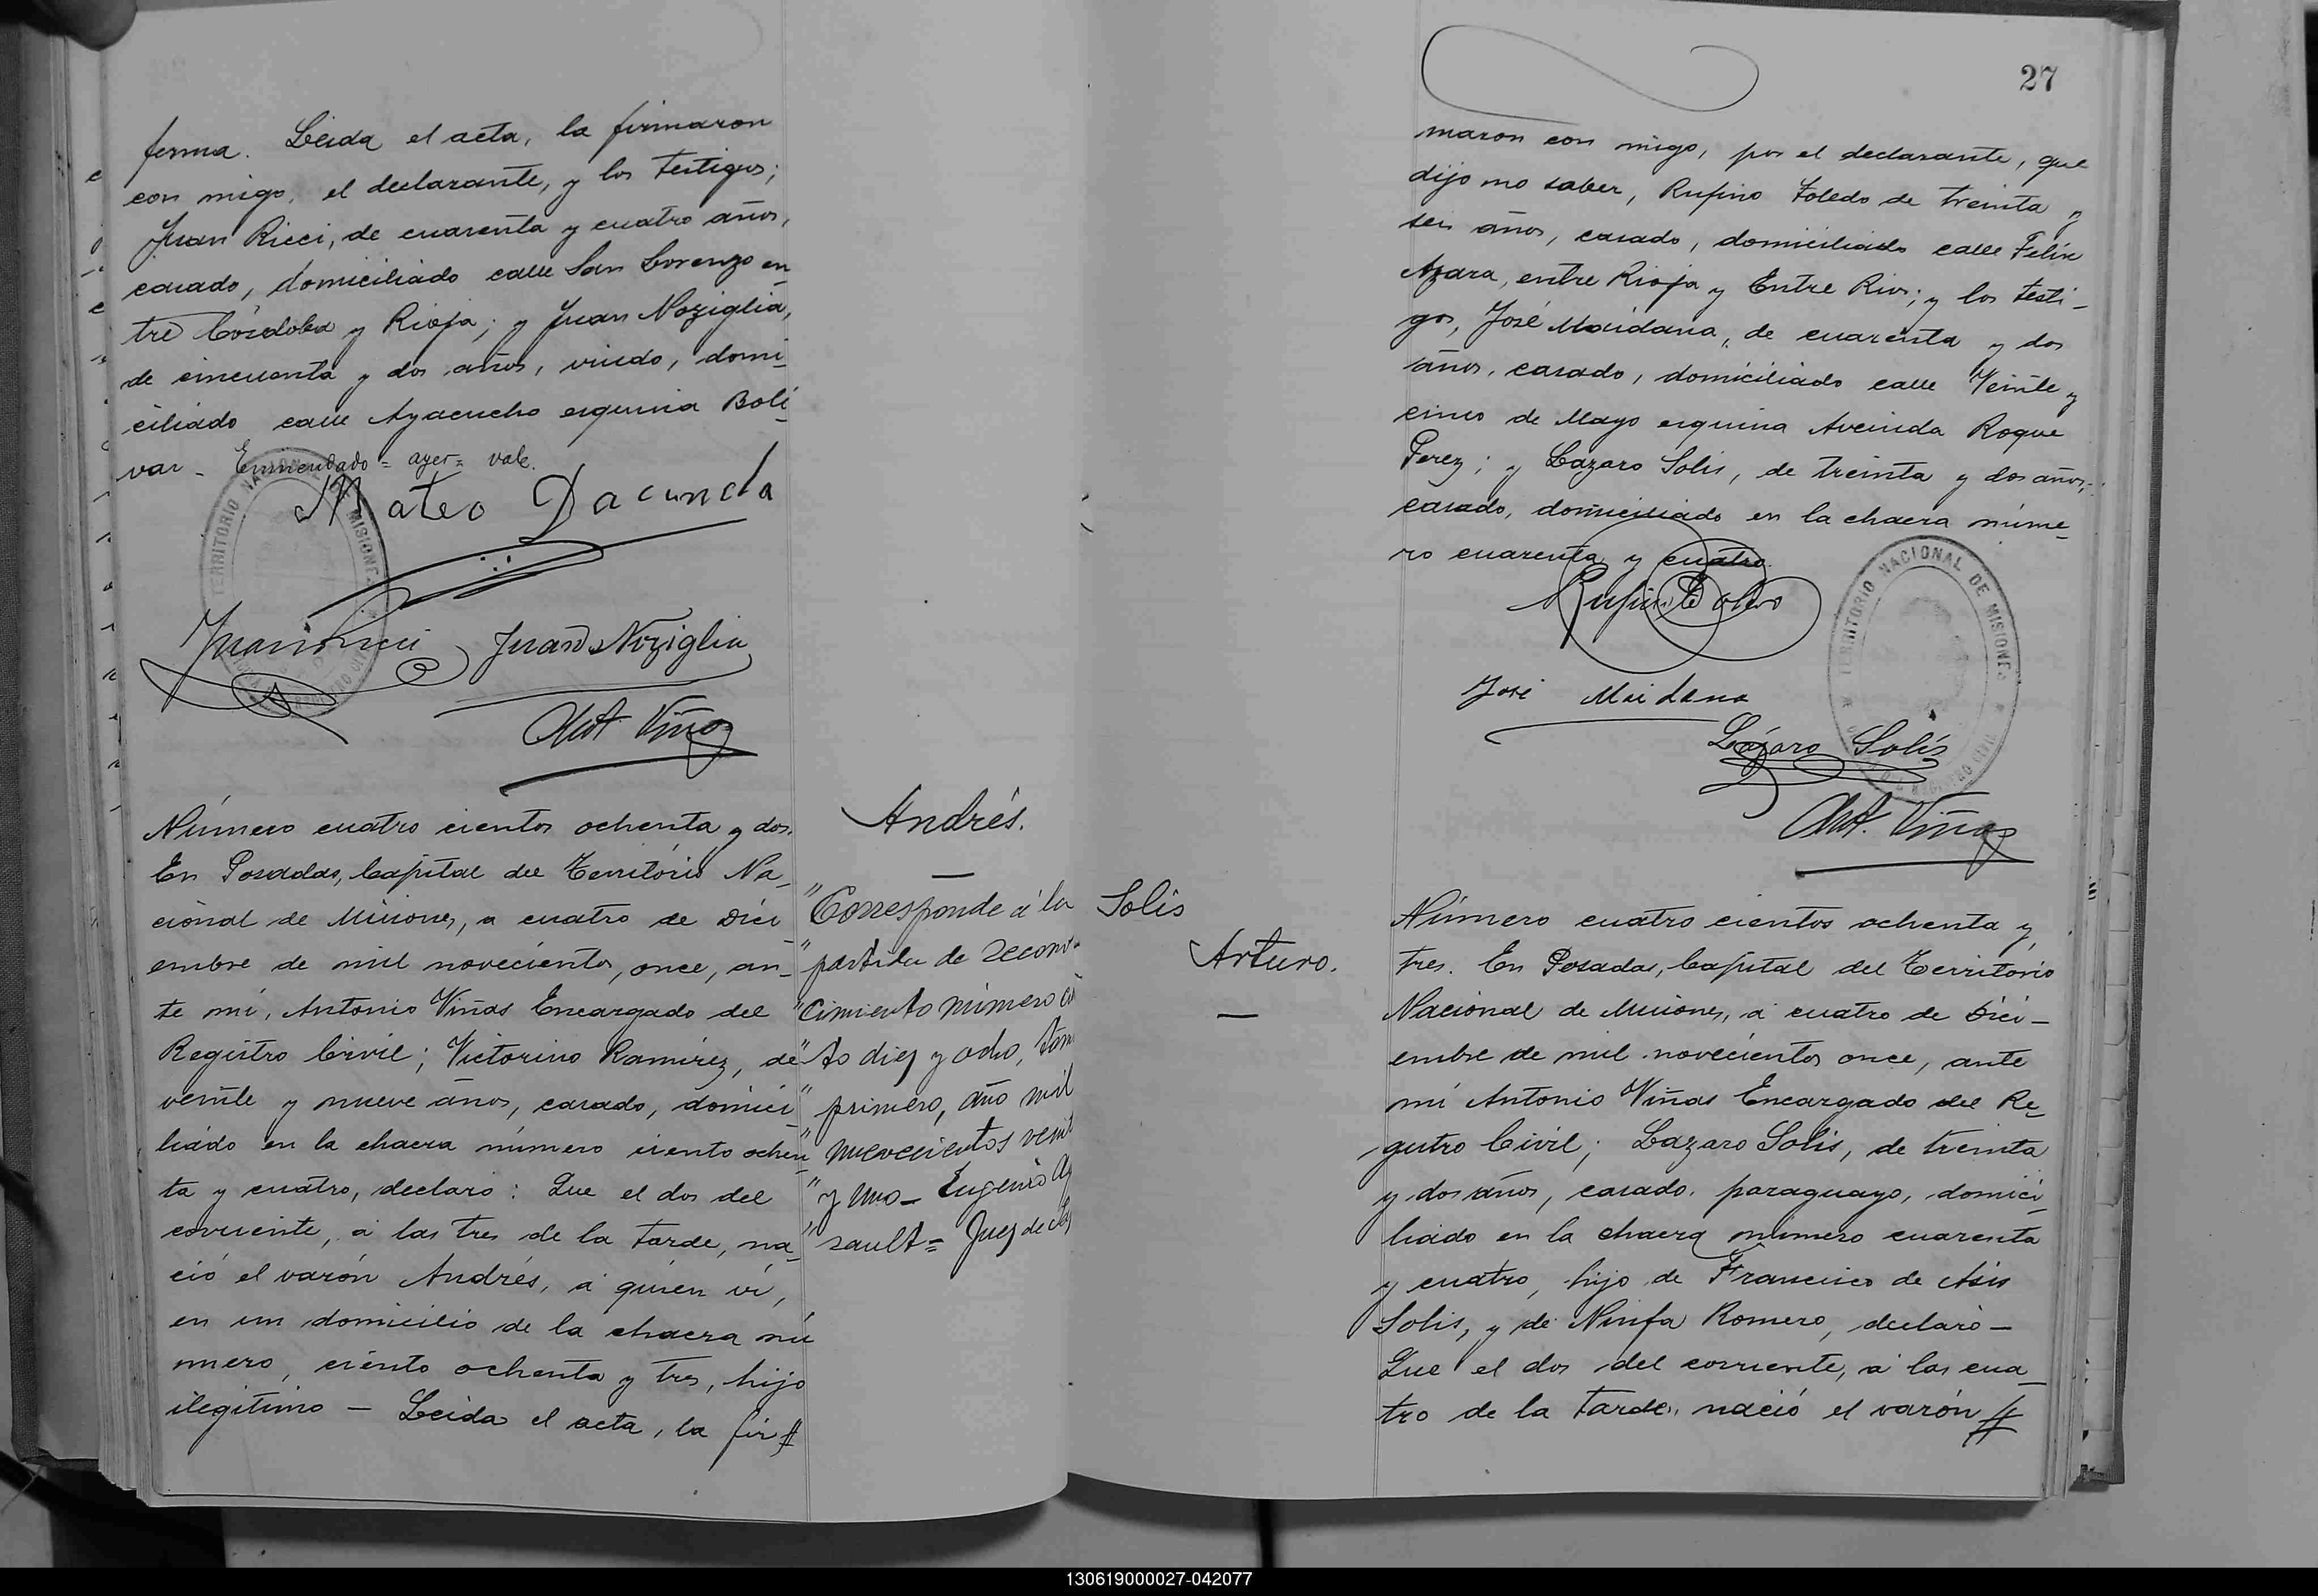 ferma. Leida el acta, la firmaron
con migo, el declarante, y los testigos;
Juan Ricci, de cuarenta y cuatro años,
casado, domiciliado calle San Lorenzo en
tre Córdoba y Rioja; y Juan Noziglia,
de cincuenta y dos años, viudo, domi-
ciliado calle Ayacucho esquina Boli-
var - Enmendado = ayer = vale.
Mateo Dacunda
TERRITORIO NACIONAL DE MISIONES
Juan Ricci Juan Noziglia
Ant. Viñas
Número cuatro cientos ochenta y dos.
En Posadas, Capital del Território Na-
cional de Misiones, a cuatro de Dici
embre de mil novecientos, once, an-
te mi, Antonio Viñas Encargado del
Registro Civil; Victorino Ramirez, de
veinte y nueve años, casado, domici
liado en la chacra número ciento ochen
ta y cuatro, declaró: Que el dos del
corriente, a las tres de la tarde, na-
ció el varón Andrés, a quien vi,
en un domicilio de la chacra nú
mero, ciento ochenta y tres, hijo
ilegitimo - Leida el acta, la fir
Andrés.
"Corresponde á la
"partida de recono-
"cimiento número ci
"to diez y ocho, tom
"primero, año mil
"nuevecientos veint
"y uno - Eugenio
"sault = Juez de
27
maron con migo, por el declarante, que
dijo no saber, Rufino Toledo de treinta y
seis años, casado, domiciliado calle Felix
Azara, entre Rioja y Entre Rios; y los testi-
gos, José Maidana, de cuarenta y dos
años, casado, domiciliado calle Veinte y
cinco de Mayo esquina Avenida Roque
Perez; y Lazaro Solis, de treinta y dos años,
casado, domiciliado en la chacra núme-
ro cuarenta y cuatro.
Rufino Toledo
TERRITORIO NACIONAL DE MISIONES
José Maidana
Lázaro Solís
Ant. Viñas
Solis
Arturo.
Número cuatro cientos ochenta y
tres. En Posadas, Capital del Territorio
Nacional de Misiones, a cuatro de Dici-
embre de mil novecientos once, ante
mi Antonio Viñas Encargado del Re-
gistro Civil; Lazaro Solis, de treinta
y dos años, casado, paraguayo, domici-
liado en la chacra número cuarenta
y cuatro, hijo de Francisco de Asis
Solis, y de Ninfa Romero, declaró-
Que el dos del corriente, a las cua-
tro de la tarde, nació el varón
130619000027-042077